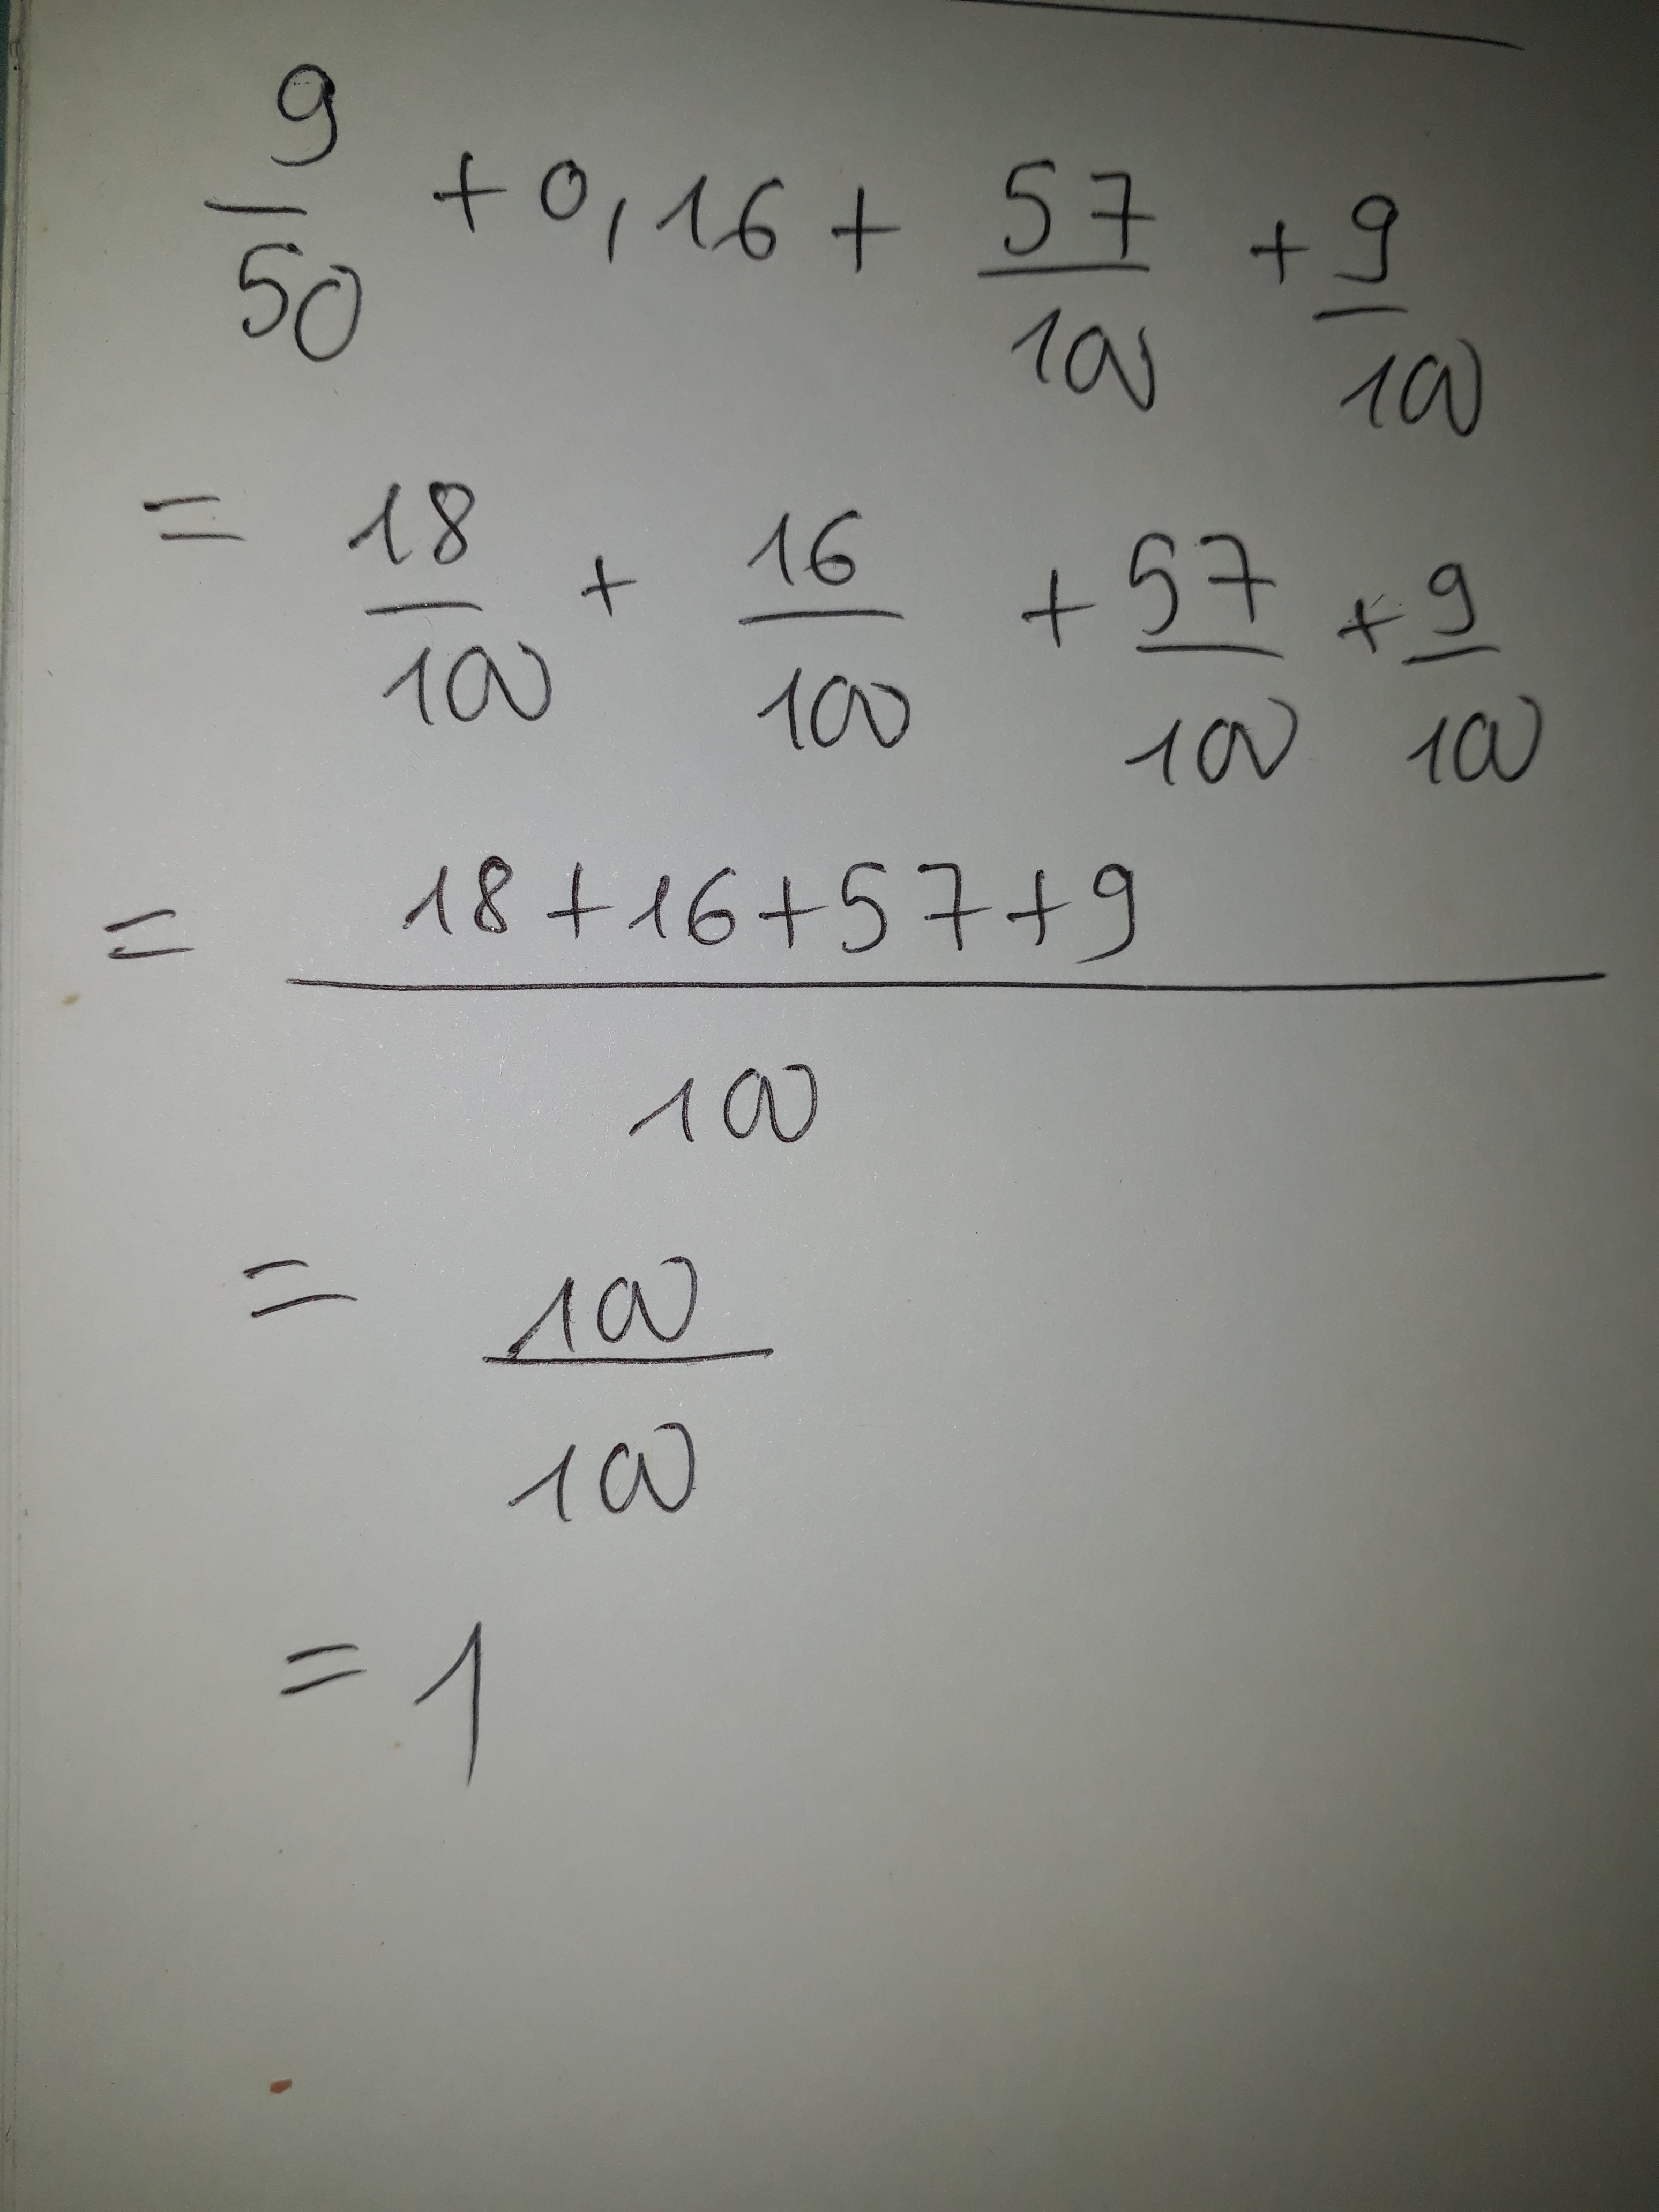 9/50 + 0,16 + 57/100 + 9/100
= 18/100 + 16/100 + 57/100 + 9/100
= (18+16+57+9)/100
= 100/100
= 1